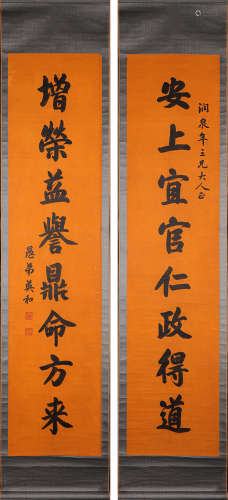 润泉年三兄大人正
安上宜官仁政得道
增榮益譽鼎命方来
愚弟英和